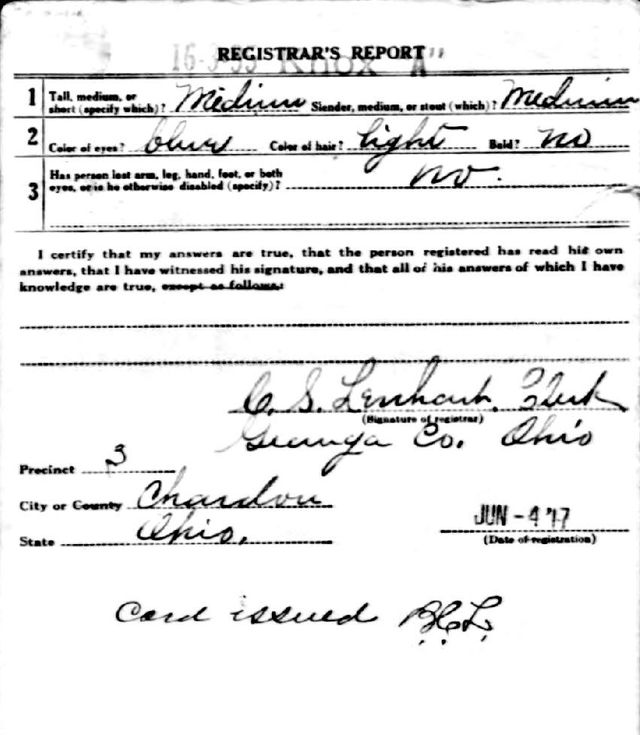 REGISTRAR'S REPORT
1 Tall, medium, or short (specify which)? Medium Slender, medium, or stout (which)? Medium
2 Color of eyes? blue Color of hair? light Bald? no
3 Has person lost arm, leg, hand, foot, or both eyes, or is he otherwise disabled (specify)? no.
I certify that my answers are true, that the person registered has read his own
answers, that I have witnessed his signature, and that all of his answers of which I have
knowledge are true, except as follows:
C. S. Lenhart, Clerk
(Signature of registrar)
Geauga Co. Ohio
Precinct 3
City or County Chardon
State Ohio.
JUN - 4 '17
(Date of registration)
Card issued B.C.L.